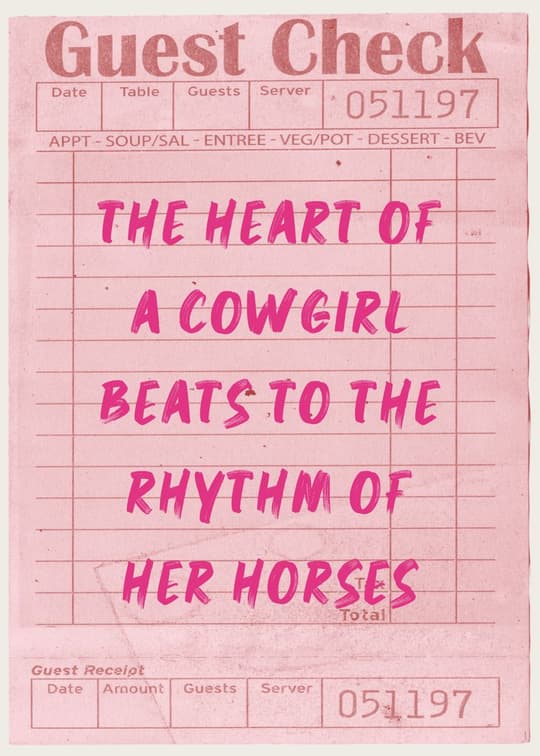 Guest Check
Date Table Guests Server 051197
APPT - SOUP/SAL - ENTREE - VEG/POT - DESSERT - BEV
THE HEART OF
A COWGIRL
BEATS TO THE
RHYTHM OF
HER HORSES
Tax
Total
Guest Receipt
Date Amount Guests Server 051197